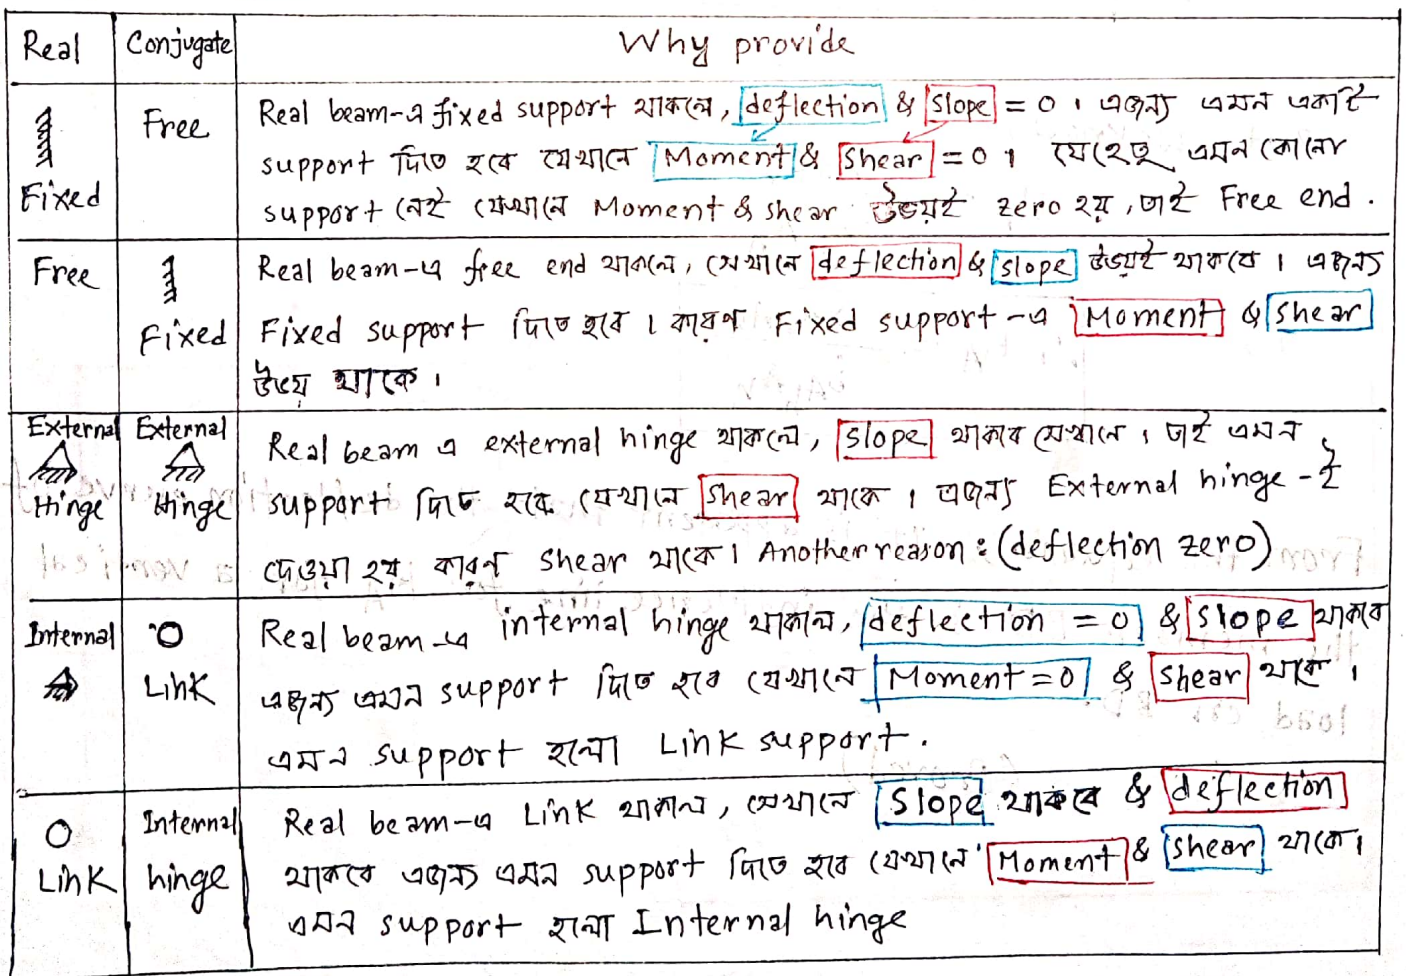 Real Conjugate Why provide
Fixed
Free
Real beam-এ fixed support থাকলে, deflection & slope = 0 । এজন্য এমন একটি
support দিতে হবে যেখানে Moment & shear = 0 । যেহেতু এমন কোনো
support নেই যেখানে Moment & shear উভয়ই zero হয়, তাই Free end.
Free
Fixed
Real beam-এ free end থাকলে, সেখানে deflection & slope উভয়ই থাকবে । এজন্য
Fixed support দিতে হবে । কারণ Fixed support-এ Moment & shear
উভয় থাকে ।
External
Hinge
External
Hinge
Real beam এ external hinge থাকলে, slope থাকবে সেখানে । তাই এমন
support দিতে হবে যেখানে shear থাকে । এজন্য External hinge-ই
দেওয়া হয় কারণ shear থাকে । Another reason: (deflection zero)
Internal
Link
Real beam-এ internal hinge থাকলে, deflection = 0 & slope থাকবে
এজন্য এমন support দিতে হবে যেখানে Moment = 0 & shear থাকে ।
এমন support হলো Link support.
Link
Internal
hinge
Real beam-এ Link থাকলে, সেখানে slope থাকবে & deflection
থাকবে এজন্য এমন support দিতে হবে যেখানে Moment & shear থাকে ।
এমন support হলো Internal hinge